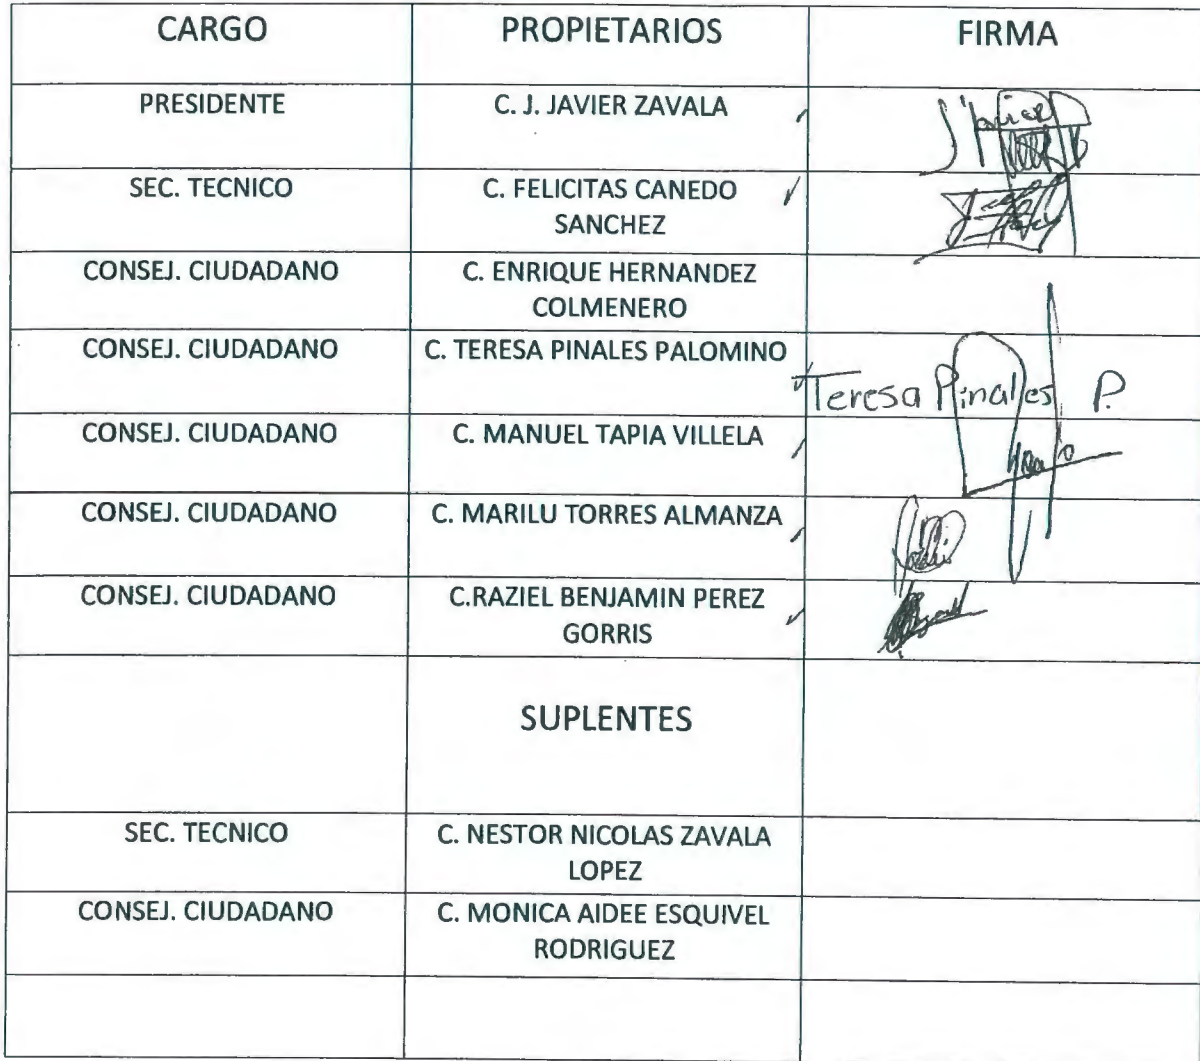 CARGO PROPIETARIOS FIRMA
PRESIDENTE C. J. JAVIER ZAVALA
J Javier
SEC. TECNICO C. FELICITAS CANEDO
SANCHEZ
CONSEJ. CIUDADANO C. ENRIQUE HERNANDEZ
COLMENERO
CONSEJ. CIUDADANO C. TERESA PINALES PALOMINO
Teresa Pinales P.
CONSEJ. CIUDADANO C. MANUEL TAPIA VILLELA
CONSEJ. CIUDADANO C. MARILU TORRES ALMANZA
CONSEJ. CIUDADANO C.RAZIEL BENJAMIN PEREZ
GORRIS
SUPLENTES
SEC. TECNICO C. NESTOR NICOLAS ZAVALA
LOPEZ
CONSEJ. CIUDADANO C. MONICA AIDEE ESQUIVEL
RODRIGUEZ